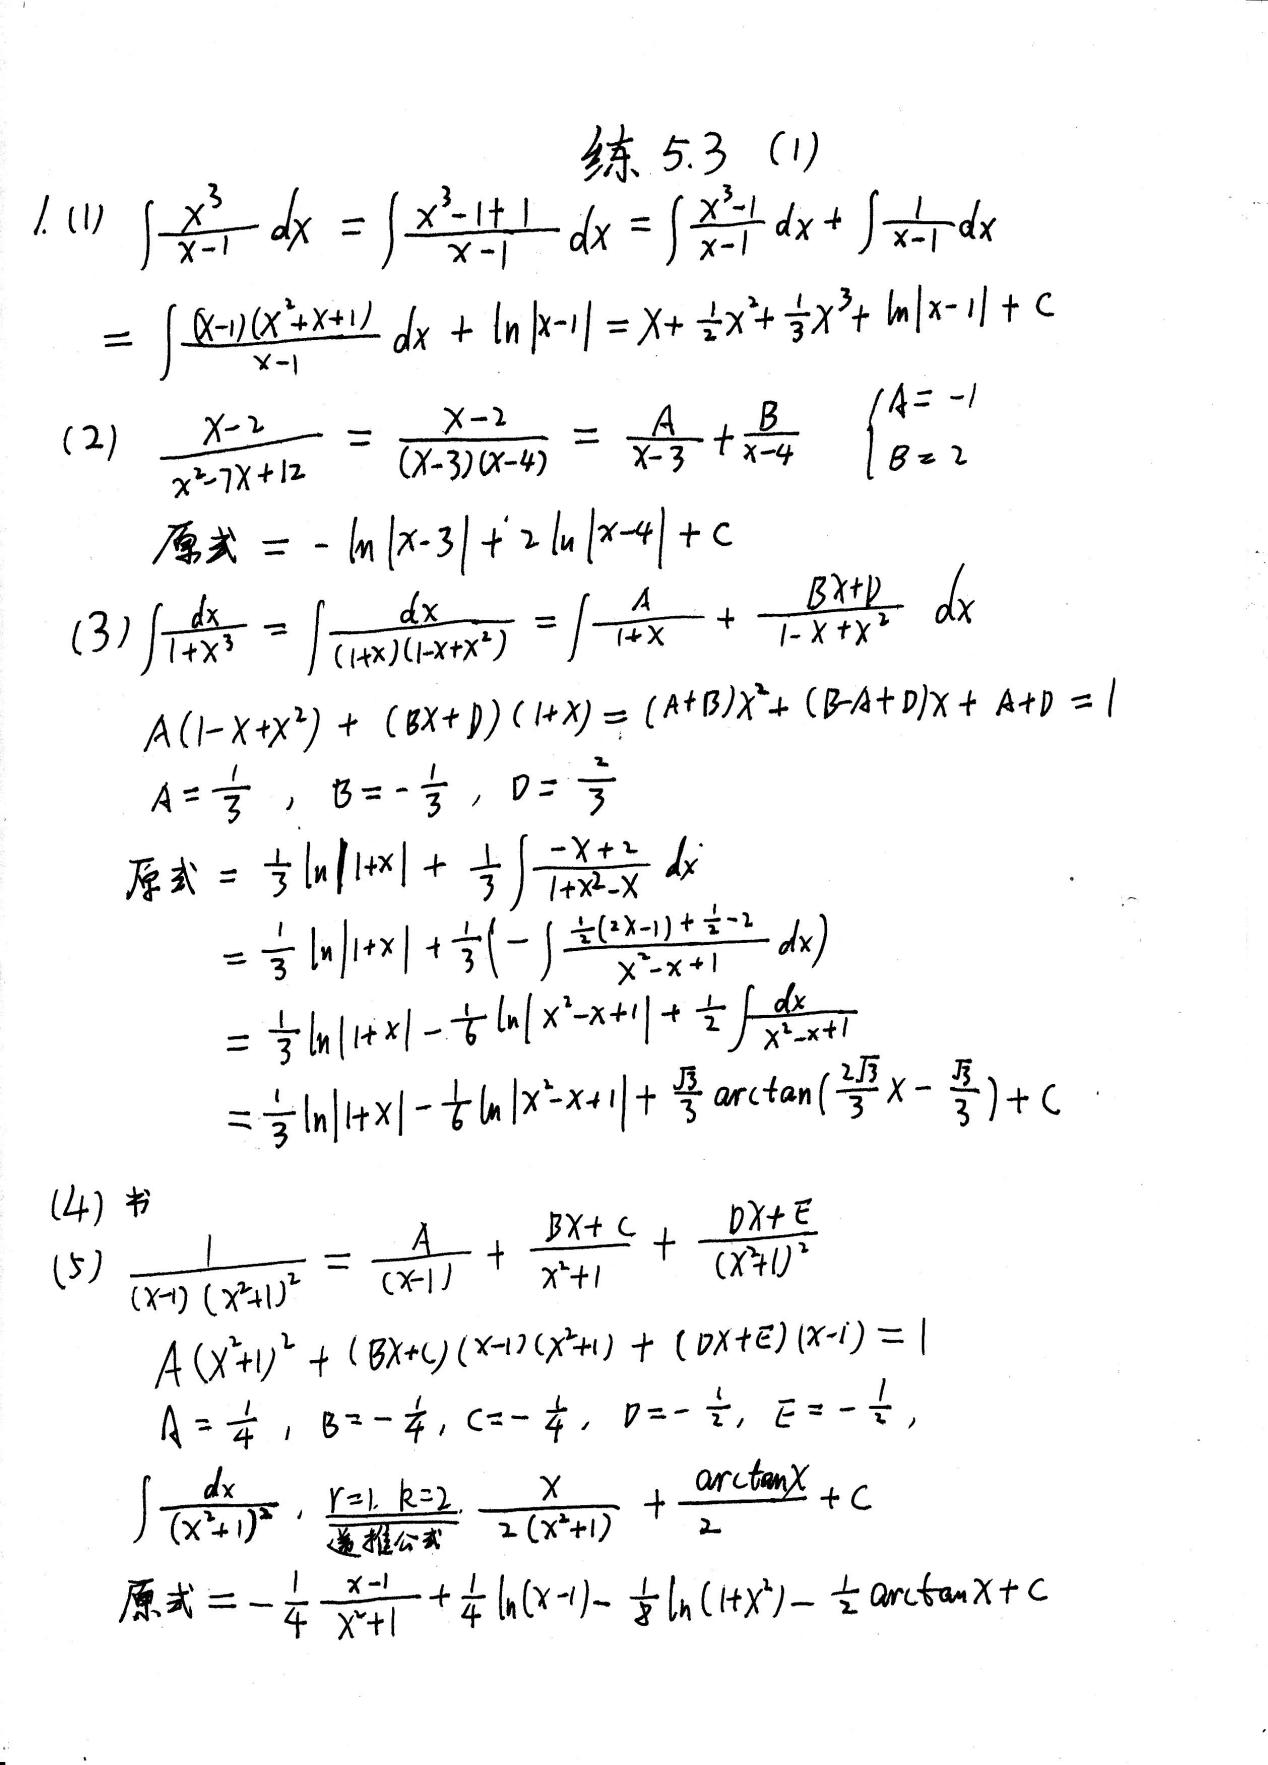 练 5.3 (1)
1. (1) ∫ x³/(x-1) dx = ∫ (x³-1+1)/(x-1) dx = ∫ (x³-1)/(x-1) dx + ∫ 1/(x-1) dx
= ∫ (x-1)(x²+x+1)/(x-1) dx + ln|x-1| = x + 1/2 x² + 1/3 x³ + ln|x-1| + C
(2) (x-2)/(x²-7x+12) = (x-2)/((x-3)(x-4)) = A/(x-3) + B/(x-4) { A = -1 B = 2
原式 = - ln|x-3| + 2 ln|x-4| + C
(3) ∫ dx/(1+x³) = ∫ dx/((1+x)(1-x+x²)) = ∫ A/(1+x) + (Bx+D)/(1-x+x²) dx
A(1-x+x²) + (Bx+D)(1+x) = (A+B)x² + (B-A+D)x + A+D = 1
A = 1/3 , B = -1/3 , D = 2/3
原式 = 1/3 ln|1+x| + 1/3 ∫ (-x+2)/(1+x²-x) dx
= 1/3 ln|1+x| + 1/3 (- ∫ (1/2(2x-1) + 1/2 - 2)/(x²-x+1) dx)
= 1/3 ln|1+x| - 1/6 ln|x²-x+1| + 1/2 ∫ dx/(x²-x+1)
= 1/3 ln|1+x| - 1/6 ln|x²-x+1| + √3/3 arctan(2√3/3 x - √3/3) + C
(4) 书
(5) 1/((x-1)(x²+1)²) = A/(x-1) + (Bx+C)/(x²+1) + (Dx+E)/(x²+1)²
A(x²+1)² + (Bx+C)(x-1)(x²+1) + (Dx+E)(x-1) = 1
A = 1/4 , B = -1/4 , C = -1/4 , D = -1/2 , E = -1/2 ,
∫ dx/(x²+1)² , r=1, k=2, 递推公式 x/(2(x²+1)) + arctanx/2 + C
原式 = - 1/4 (x-1)/(x²+1) + 1/4 ln(x-1) - 1/8 ln(1+x²) - 1/2 arctanx + C